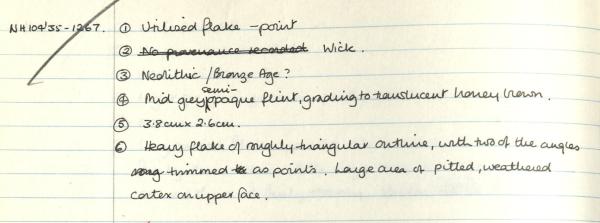 NH104'35-1267. ① Utilised flake - point
② ~~No provenance recorded~~ Wick.
③ Neolithic / Bronze Age?
④ Mid grey semi-opaque flint, grading to translucent honey brown.
⑤ 3.8cm x 2.6cm.
⑥ Heavy flake of roughly triangular outline, with two of the angles
trimmed as points. Large area of pitted, weathered
cortex on upper face.